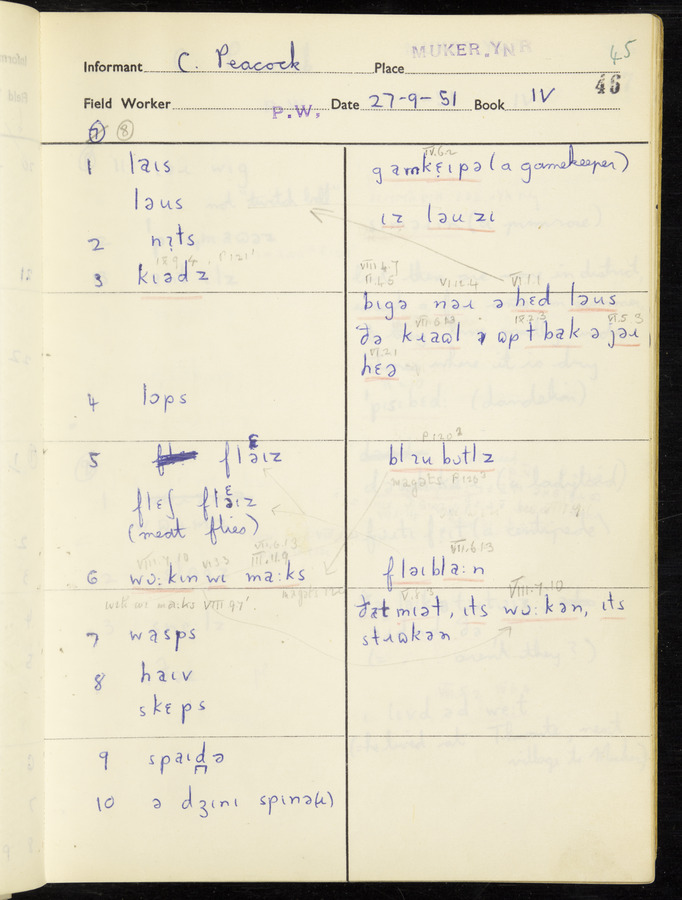 MUKER. YNR
45
Informant C. Peacock Place
46
Field Worker P.W. Date 27-9-51 Book IV
7 8
1 laɪs
ləus
2 nɪ̣ts
IX.9.4, P121'
3 kɪədz
4 lɒps
5 fləɪz
ɛ
flɛʃ fləɪz
ɛ
(meat flies)
VIII.4.10 V.3.3 VII.6.13
III.12.9
6 wʊ:kɪn wɪ ma:ks
VIII 9.7'
7 wasps
8 haɪv
skɛps
9 spaɪd̪ə
10 ə dʒɪnɪ spɪnə(ɹ)
IV.6.2
gamkɛ̣ɪpə (a gamekeeper)
ɪz ləuzɪ
VIII.4.7
VI.12.4 VI.1.1
bɪgə nəɪ ə hɛd ləus
VII.6.13 IX.2.3 VI.5.3
ðə kɹaɷl ə ɷp t bak ə jəɹ
VI.2.1
hɛə
P120²
blɪu bɒtlz
magəts P120³
VII.6.13
fləɪbla:n
V.8.3 VIII.4.10
ðat mɪət, ɪts wʊ:kən, ɪts
stɹɷkən